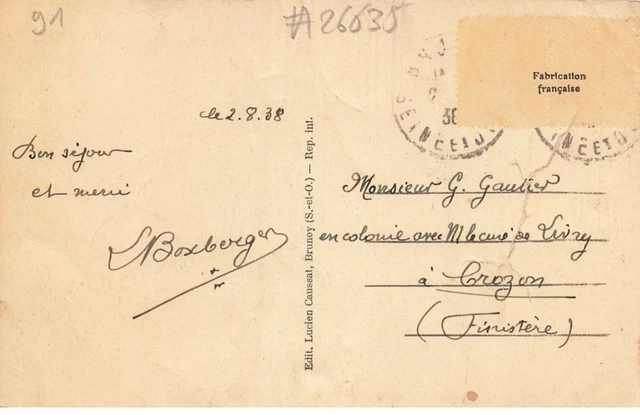 91
#26635
Fabrication
française
38
SEINE ET O
INE ET O
le 2.8.38
Bon séjour
et merci
Boxberger
Edit. Lucien Caussat, Brunoy (S.-et-O.) — Rep. int.
Monsieur G. Gautier
en colonie avec M le curé de Livry
à Crozon
(Finistère)